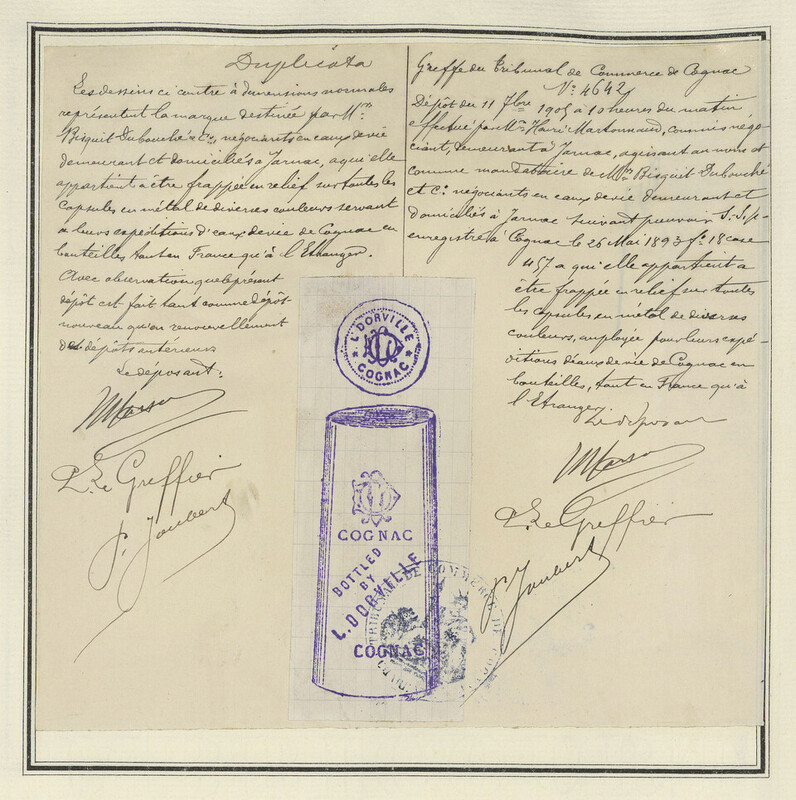 Duplicata
Les dessins ci contre à dimensions normales
représentent la marque destinée par Mrs
Bisquit Dubouché & Co, négociants en eaux de vie
demeurant et domiciliés à Jarnac, a qui elle
appartient a être frappée en relief sur toutes les
capsules en métal de diverses couleurs servant
à leurs expéditions d'eaux de vie de Cognac en
bouteilles tant en France qu'à l'Etranger.
Avec observation que le présent
dépôt est fait tant comme dépôt
nouveau qu'en renouvellement
des dépôts antérieurs
Le deposant:
P. Le Greffier
P. Joubert
Greffe du Tribunal de Commerce de Cognac
No 4642
Dépôt du 11 7bre 1905 à 10 heures du matin
effectué par Mr Henri Martonnaud, commis négo-
ciant, demeurant à Jarnac, agissant au nom et
comme mandataire de Mrs Bisquit Dubouché
et Co négociants en eaux de vie demeurant et
domiciliés à Jarnac suivant pouvoir S.S.p.
enregistré à Cognac le 26 Mai 1893 fo 18 case
457 a qui elle appartient a
être frappée en relief sur toutes
les capsules en métal de diverses
couleurs, employée pour leurs expé-
ditions d'eaux de vie de Cognac en
bouteilles, tant en France qu'à
l'Etranger.
Le deposant
P. Le Greffier
P. Joubert
L. DORVILLE
COGNAC
COGNAC
BOTTLED
BY
L. DORVILLE
COGNAC
TRIBUNAL DE COMMERCE DE